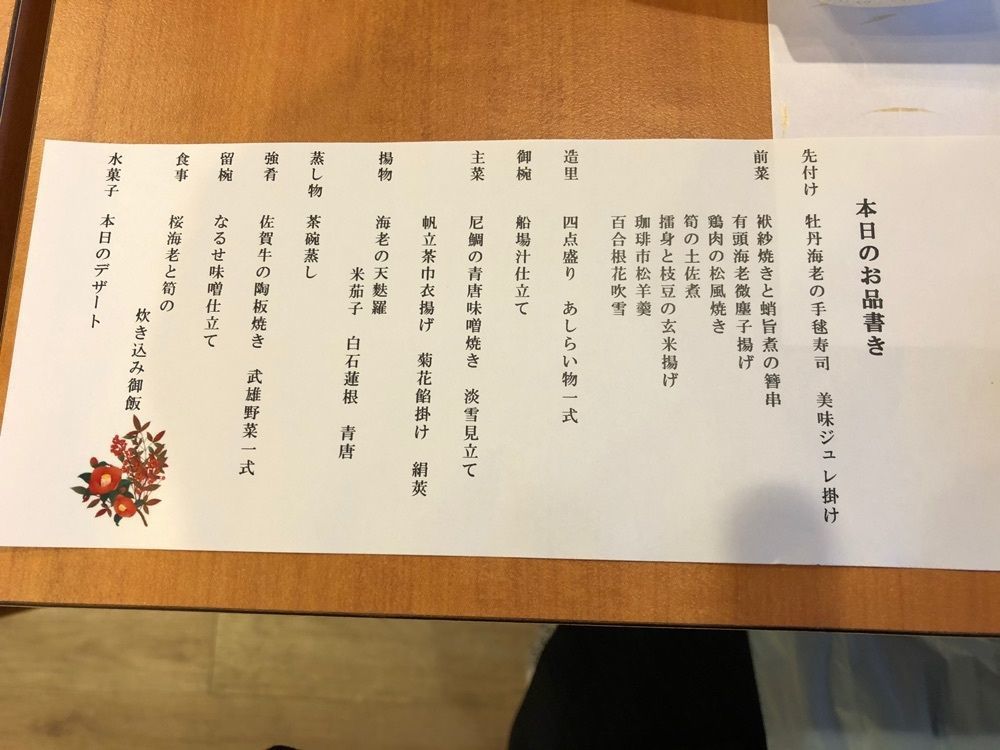 本日のお品書き
先付け 牡丹海老の手毬寿司 美味ジュレ掛け
前菜 袱紗焼きと蛸旨煮の簪串
有頭海老微塵子揚げ
鶏肉の松風焼き
筍の土佐煮
擂身と枝豆の玄米揚げ
珈琲市松羊羹
百合根花吹雪
造里 四点盛り あしらい物一式
御椀 船場汁仕立て
主菜 尼鯛の青唐味噌焼き 淡雪見立て
帆立茶巾衣揚げ 菊花餡掛け 絹莢
揚物 海老の天麩羅
米茄子 白石蓮根 青唐
蒸し物 茶碗蒸し
強肴 佐賀牛の陶板焼き 武雄野菜一式
留椀 なるせ味噌仕立て
食事 桜海老と筍の
炊き込み御飯
水菓子 本日のデザート